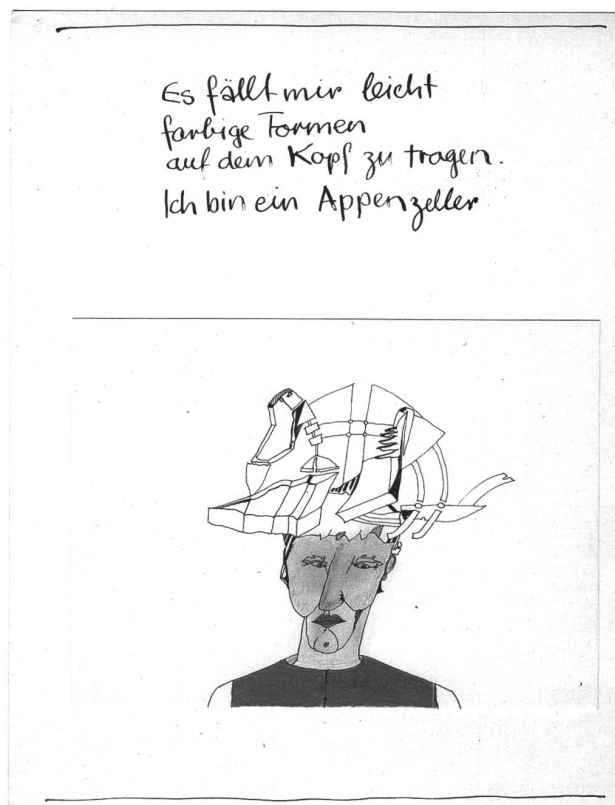 Es fällt mir leicht
farbige Formen
auf dem Kopf zu tragen.
Ich bin ein Appenzeller